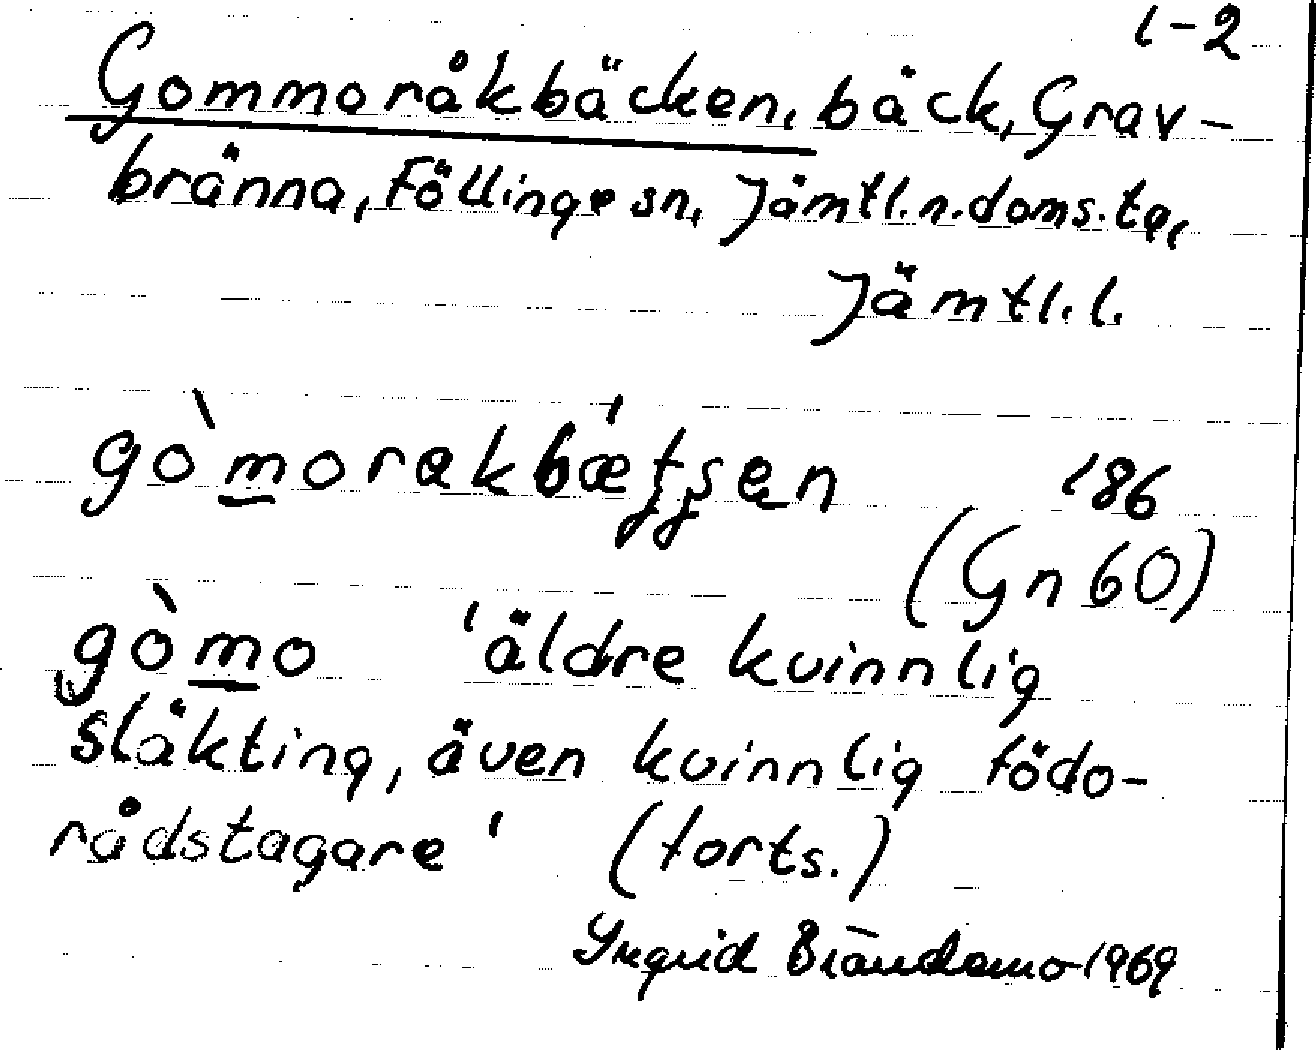 1-2
Gommoråkbäcken, bäck, Grav-
bränna, Föllinge sn, Jämtl.n.doms.tg,
Jämtl.l.
gòmorakbǽʈʂen 186
(Gn 60)
gòmo 'äldre kvinnlig
släkting, även kvinnlig födo-
rådstagare' (forts.)
Ingrid Brändemo 1969